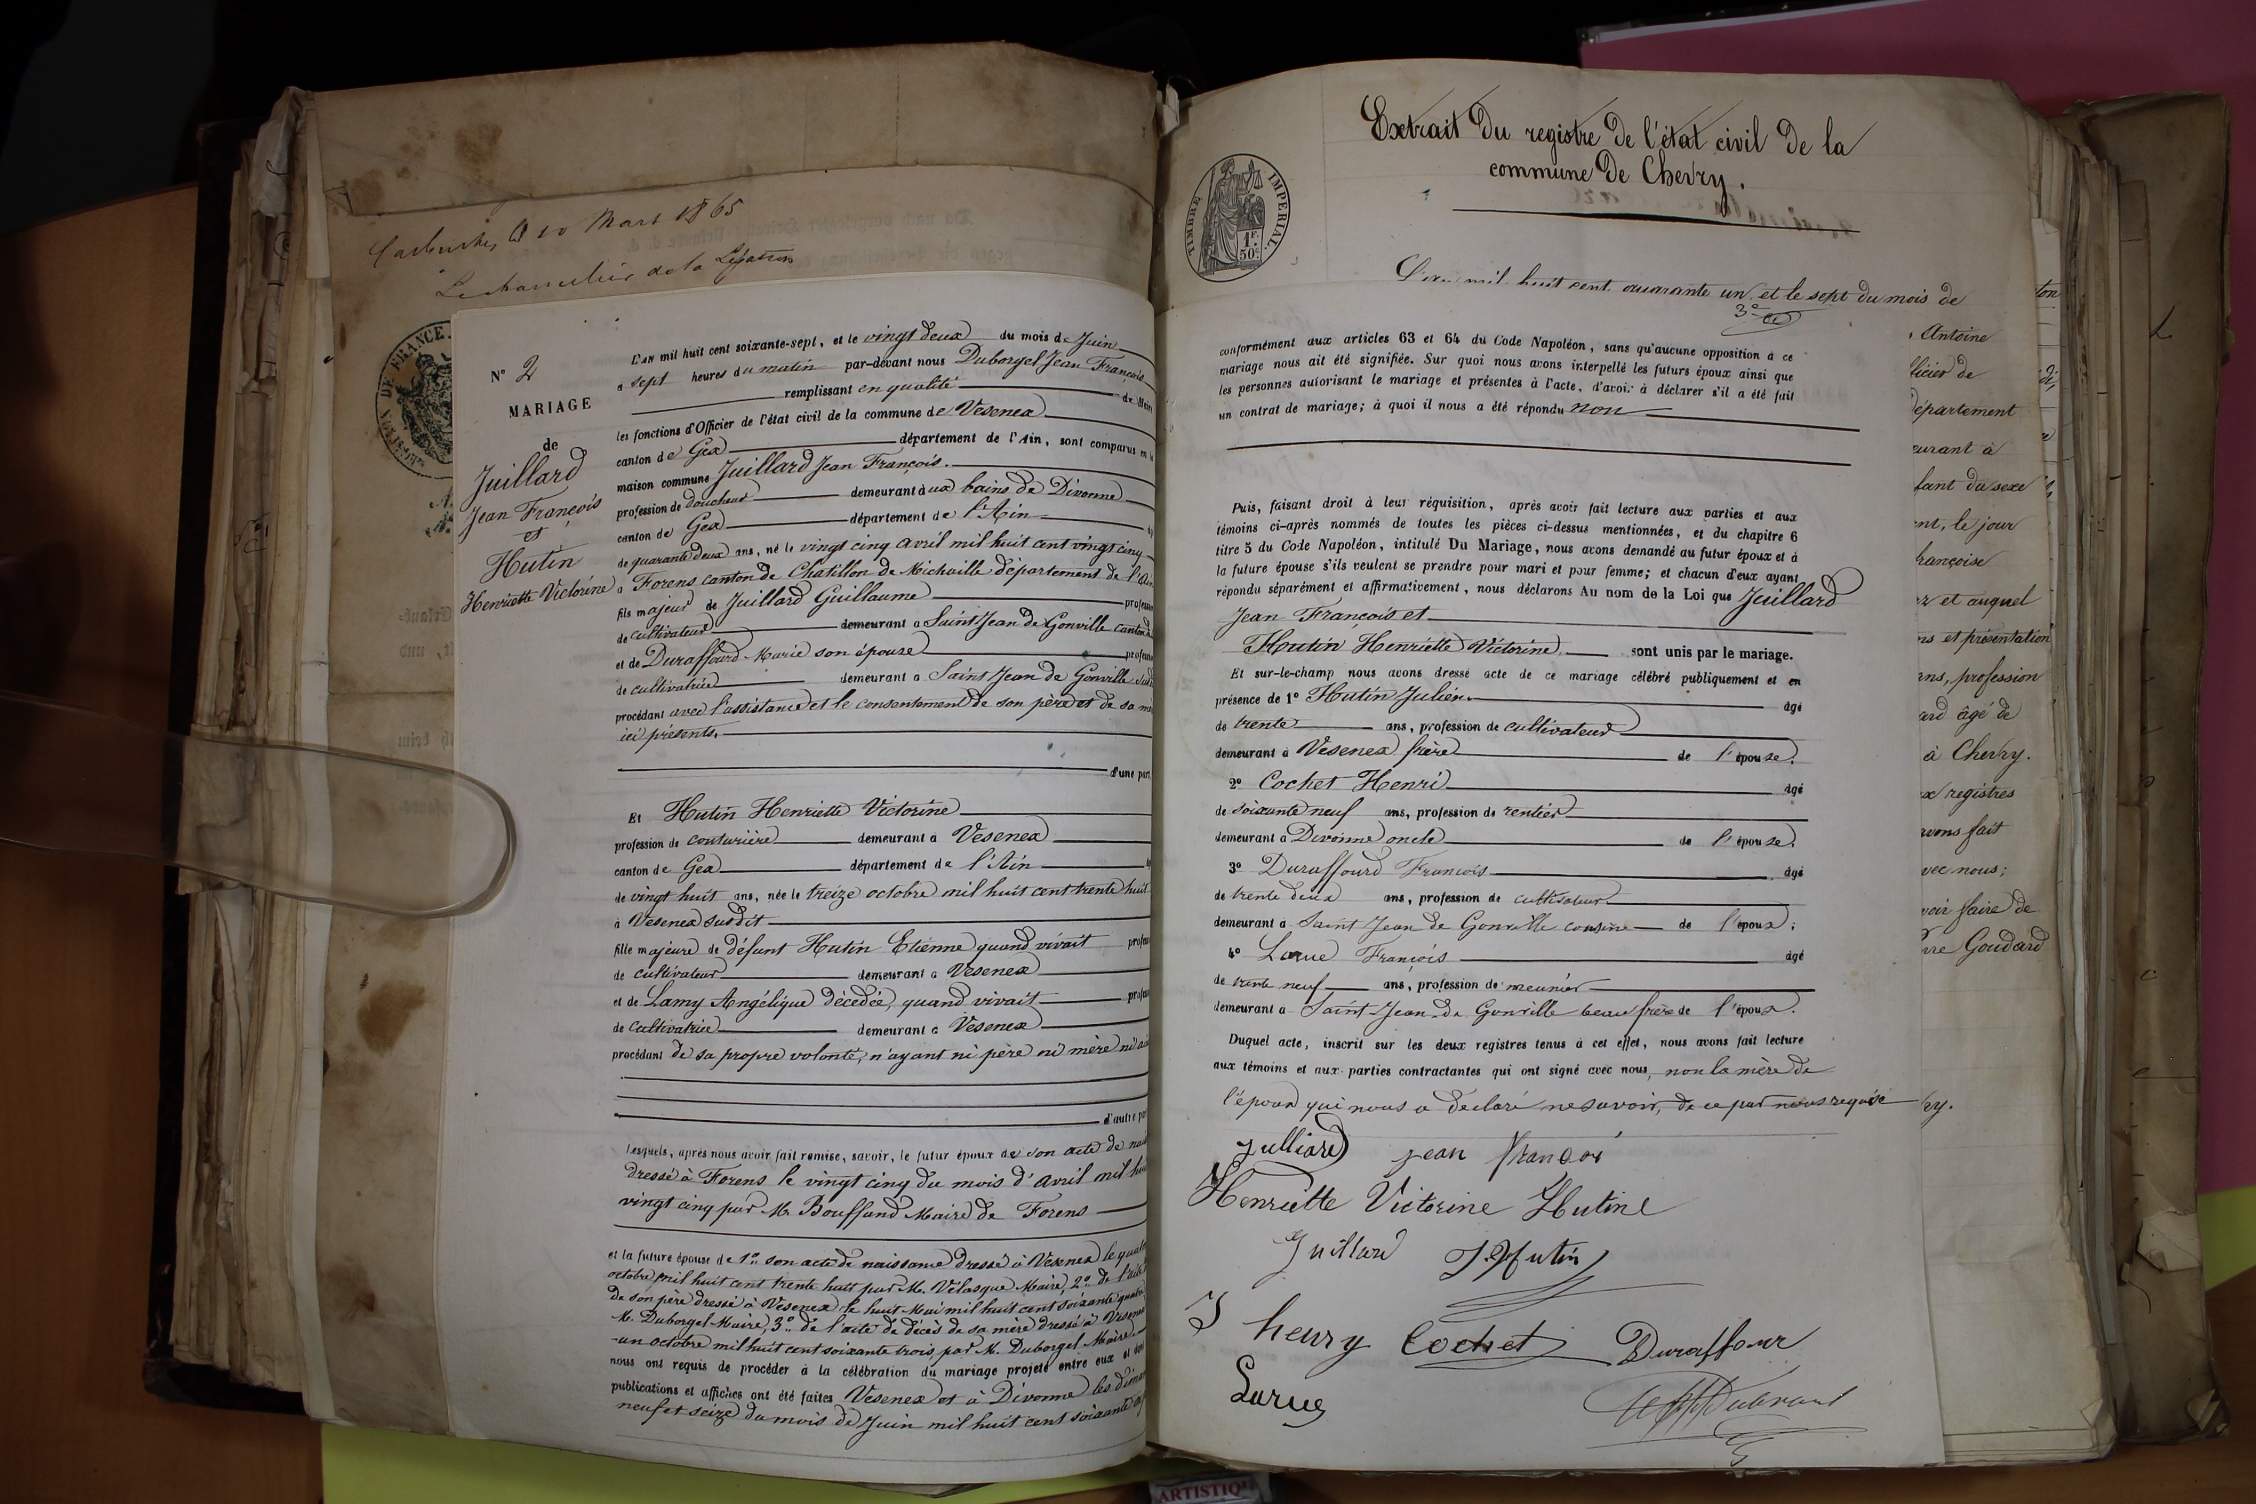 Carlsruhe, 10 Mars 1865
Le chancelier de la Légation
DE FRANCE
N° 2
MARIAGE
de
Juillard
Jean François
et
Hutin
Henriette Victorine
L'AN mil huit cent soixante-sept, et le vingt deux du mois de Juin
a sept heures du matin par-devant nous Duborgel Jean François
remplissant en qualité de Maire
les fonctions d'Officier de l'état civil de la commune de Vesenex
canton de Gex département de l'Ain, sont comparus en la
maison commune Juillard Jean François.
profession de doucheur demeurant aux bains de Divonne
canton de Gex département de l'Ain
de quarante deux ans, né le vingt cinq avril mil huit cent vingt cinq
a Forens canton de Chatillon de Michaille département de l'Ain
fils majeur de Juillard Guillaume profession
de cultivateur demeurant a Saint Jean de Gonville canton
et de Duraffourd Marie son épouse profession
de cultivatrice demeurant a Saint Jean de Gonville
procédant avec l'assistance et le consentement de son père et de sa
ici présents.
d'une part
Et Hutin Henriette Victorine
profession de couturière demeurant à Vesenex
canton de Gex département de l'Ain
de vingt huit ans, née le treize octobre mil huit cent trente huit
à Vesenex susdit
fille majeure de défunt Hutin Etienne quand vivait
de cultivateur demeurant a Vesenex
et de Lamy Angélique décédée, quand vivait
de cultivatrice demeurant a Vesenex
procédant de sa propre volonté, n'ayant ni père ni mère ni
d'autre part
Lesquels, après nous avoir fait remise, savoir, le futur époux de son acte de
dressé à Forens le vingt cinq du mois d'avril mil
vingt cinq par M. Bouffand Maire de Forens
et la future épouse de 1° son acte de naissance dressé à Vesenex le
octobre mil huit cent trente huit par M. Velasque Maire, 2° de
de son père dressé à Vesenex le huit Mai mil huit cent soixante quatre
M. Duborgel Maire, 3° de l'acte de décès de sa mère dressé à
un octobre mil huit cent soixante trois par M. Duborgel Maire
nous ont requis de procéder à la célébration du mariage projeté entre eux et
publications et affiches ont été faites Vesenex et à Divonne les
neuf et seize du mois de Juin mil huit cent soixante
Extrait du registre de l'état civil de la
commune de Chevry.
TIMBRE IMPERIAL.
1F.
50c.
L'an mil huit cent quarante un et le sept du mois de
conformément aux articles 63 et 64 du Code Napoléon, sans qu'aucune opposition à ce
mariage nous ait été signifiée. Sur quoi nous avons interpellé les futurs époux ainsi que
les personnes autorisant le mariage et présentes à l'acte, d'avoir à déclarer s'il a été fait
un contrat de mariage; à quoi il nous a été répondu non
Puis, faisant droit à leur réquisition, après avoir fait lecture aux parties et aux
témoins ci-après nommés de toutes les pièces ci-dessus mentionnées, et du chapitre 6
titre 5 du Code Napoléon, intitulé Du Mariage, nous avons demandé au futur époux et à
la future épouse s'ils veulent se prendre pour mari et pour femme; et chacun d'eux ayant
répondu séparément et affirmativement, nous déclarons Au nom de la Loi que Juillard
Jean François et
Hutin Henriette Victorine sont unis par le mariage.
Et sur-le-champ nous avons dressé acte de ce mariage célébré publiquement et en
présence de 1° Hutin Julien âgé
de trente ans, profession de cultivateur
demeurant à Vesenex frère de l'épouse.
2° Cochet Henri âgé
de soixante neuf ans, profession de rentier
demeurant a Divonne oncle de l'épouse.
3° Duraffourd François âgé
de trente deux ans, profession de cultivateur
demeurant a Saint Jean de Gonville cousin de l'époux;
4° Larue François âgé
de trente neuf ans, profession de meunier
demeurant a Saint-Jean de Gonville beau frère de l'époux.
Duquel acte, inscrit sur les deux registres tenus à cet effet, nous avons fait lecture
aux témoins et aux parties contractantes qui ont signé avec nous, non la mère de
l'époux qui nous a déclaré ne savoir, de ce par nous requise
Julliard jean françois
Henriette Victorine Hutine
Juillard J. Hutin
J henry Cochet Duraffour
Larue
Antoine
département
eurant à
fant du sexe
ent, le jour
rançoise
et auquel
ns et présentation
ans, profession
ard âgé de
à Chevry.
x registres
avons fait
vec nous;
voir faire de
re Goudard
ry.
ARTISTIQ